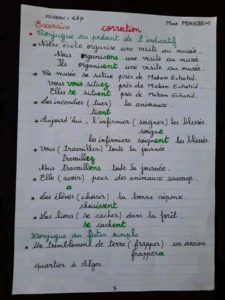 niveau : 5AP
Exercice correction
Conjugue au présent de l'indicatif
Notre école organise une visite au musée.
Nous organisons une visite au musée.
Ils organisent une visite au musée.
Ce musée se situe près de Makam Echahid.
vous vous situez près de Makam Echahid.
Elles se situent près de Makam Echahid.
Les incendies (tuer) les animaux.
tuent
Aujourd'hui, l'infirmier (soigner) les blessés.
soigne
les infirmiers soignent les blessés
Vous (travailler) toute la journée.
travaillez
Nous travaillons toute la journée.
Elle (avoir) peur des animaux sauvage.
a
Les élèves (choisir) la bonne réponse.
choisissent
Les lions (se cacher) dans la forêt.
se cachent
Conjugue au futur simple
Un tremblement de terre (frapper) un ancien
frappera
quartier à Alger.